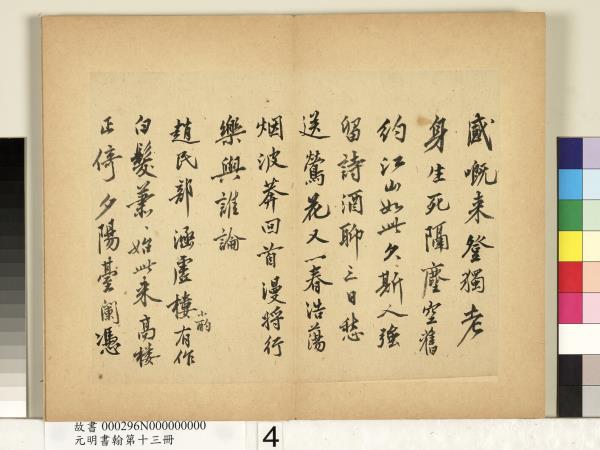 感嘅来登獨老
身生死隔塵空舊
約江山如此久斯人強
留詩酒聊三日愁
送鶯花又一春浩蕩
烟波莽回首漫将行
樂與誰論
趙民部涵虛樓有作
小酌
白髮蕭〻始此来高楼
正倚夕陽臺闌憑
故書 000296N000000000
元明書翰第十三冊
4